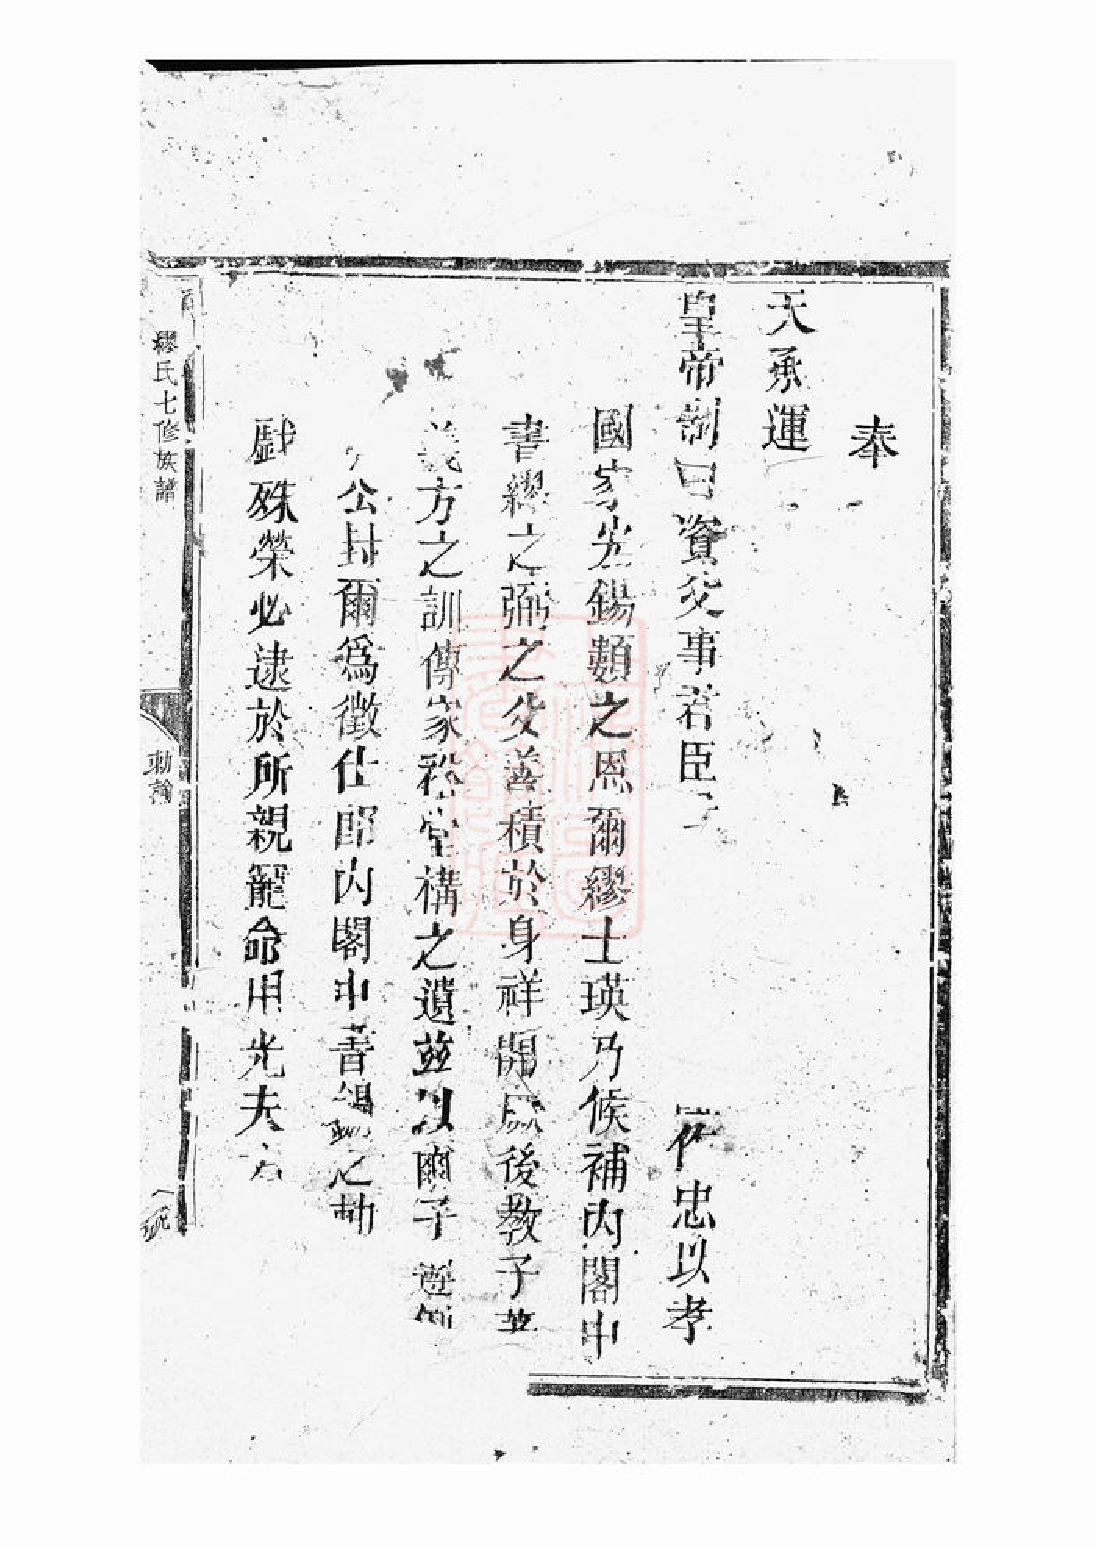 奉
天承運
皇帝制曰資父事君臣 作忠以孝
國家 錫類之恩爾繆士瑛乃候補內閣中
書繆之弼之父善積於身祥開 後教子
義方之訓傳家 堂構之遺茲以爾子
公封爾爲徵仕郎內閣中書錫之勅
戲殊榮必逮於所親寵命用光夫
繆氏七修族譜
勅翰